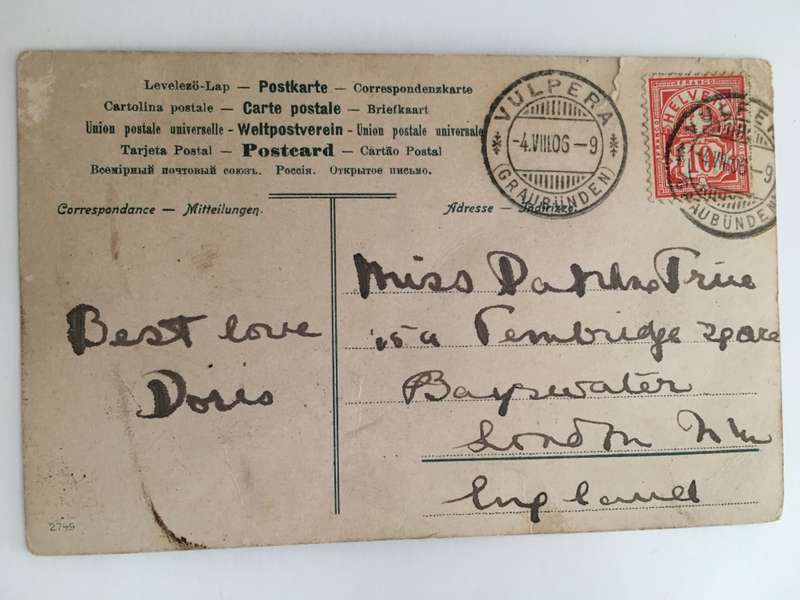 Levelező-Lap — Postkarte — Correspondenzkarte
Cartolina postale — Carte postale — Briefkaart
Union postale universelle - Weltpostverein - Union postale universale
Tarjeta Postal — Postcard — Cartão Postal
Всемірный почтовый союзъ. Россія. Открытое письмо.
VULPERA
-4.VIII.06-9
(GRAUBÜNDEN)
FRANCO
HELVETIA
10
Correspondance — Mitteilungen.
Adresse — Indirizzo
Best love
Doris
Miss True
15a Pembridge Square
Bayswater
London
England
2749